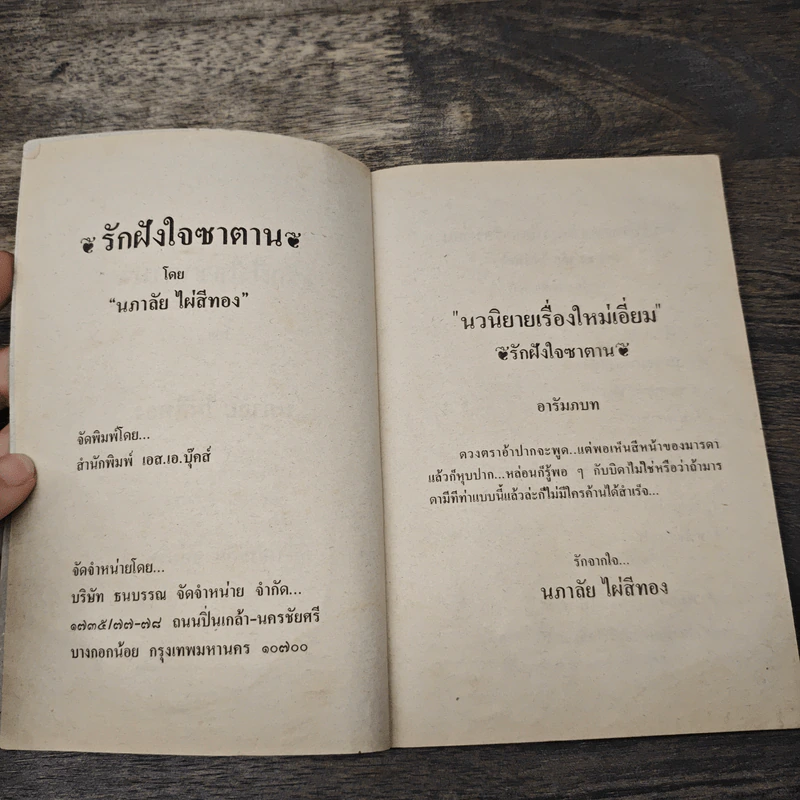 รักฝังใจซาตาน
โดย
“นภาลัย ไผ่สีทอง”
จัดพิมพ์โดย...
สำนักพิมพ์ เอส.เอ.บุ๊คส์
จัดจำหน่ายโดย...
บริษัท ธนบรรณ จัดจำหน่าย จำกัด...
๑๗๓๕/๗๗-๗๘ ถนนปิ่นเกล้า-นครชัยศรี
บางกอกน้อย กรุงเทพมหานคร ๑๐๗๐๐
"นวนิยายเรื่องใหม่เอี่ยม"
รักฝังใจซาตาน
อารัมภบท
ดวงตราอ้าปากจะพูด..แต่พอเห็นสีหน้าของมารดา
แล้วก็หุบปาก...หล่อนก็รู้พอ ๆ กับบิดาไม่ใช่หรือว่าถ้ามาร
ดามีทีท่าแบบนี้แล้วล่ะก็ไม่มีใครค้านได้สำเร็จ...
รักจากใจ...
นภาลัย ไผ่สีทอง